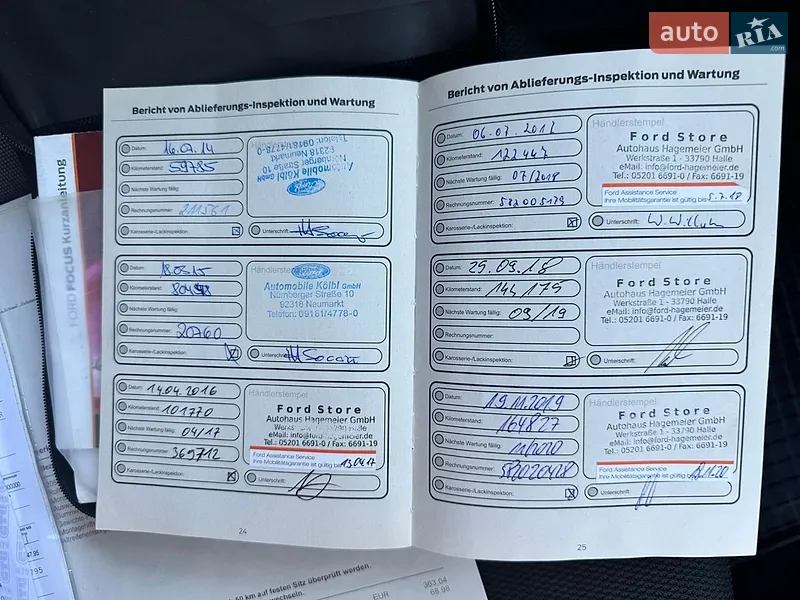 auto RIA .com
Bericht von Ablieferungs-Inspektion und Wartung
Datum: 16.07.14
Kilometerstand: 59785
Nächste Wartung fällig:
Rechnungsnummer: 211561
Karosserie-/Lackinspektion:
Automobile Kölbl GmbH
Nürnberger Straße 10
92318 Neumarkt
Telefon: 09181/4778-0
Unterschrift:
Datum: 18.03.15
Kilometerstand:
Nächste Wartung fällig:
Rechnungsnummer: 20760
Karosserie-/Lackinspektion:
Händlerstempel
Automobile Kölbl GmbH
Nürnberger Straße 10
92318 Neumarkt
Telefon: 09181/4778-0
Unterschrift:
Datum: 14.04.2016
Kilometerstand: 101770
Nächste Wartung fällig: 04/17
Rechnungsnummer: 369712
Karosserie-/Lackinspektion:
Händlerstempel
Ford Store
Autohaus Hagemeier GmbH
eMail: info@ford-hagemeier.de
Tel.: 05201 6691-0 / Fax: 6691-19
Ford Assistance Service
Ihre Mobilitätsgarantie ist gültig bis 13.04.17
Unterschrift:
24
Bericht von Ablieferungs-Inspektion und Wartung
Datum: 06.07.2017
Kilometerstand: 122447
Nächste Wartung fällig: 07/2018
Rechnungsnummer: 582005179
Karosserie-/Lackinspektion:
Händlerstempel
Ford Store
Autohaus Hagemeier GmbH
Werkstraße 1 - 33790 Halle
eMail: info@ford-hagemeier.de
Tel.: 05201 6691-0 / Fax: 6691-19
Ford Assistance Service
Ihre Mobilitätsgarantie ist gültig bis 5.7.18
Unterschrift:
Datum: 25.09.18
Kilometerstand: 144175
Nächste Wartung fällig: 09/19
Rechnungsnummer:
Karosserie-/Lackinspektion:
Händlerstempel
Ford Store
Autohaus Hagemeier GmbH
Werkstraße 1 - 33790 Halle
eMail: info@ford-hagemeier.de
Tel.: 05201 6691-0 / Fax: 6691-19
Unterschrift:
Datum: 19.11.2019
Kilometerstand: 164827
Nächste Wartung fällig: 11/2020
Rechnungsnummer:
Karosserie-/Lackinspektion:
Händlerstempel
Ford Store
Autohaus Hagemeier GmbH
Werkstraße 1 - 33790 Halle
eMail: info@ford-hagemeier.de
Tel.: 05201 6691-0 / Fax: 6691-19
Ford Assistance Service
Ihre Mobilitätsgarantie ist gültig bis
Unterschrift:
25
FORD FOCUS Kurzanleitung
50 km auf festen Sitz überprüft werden.
EUR
363.04
68.98